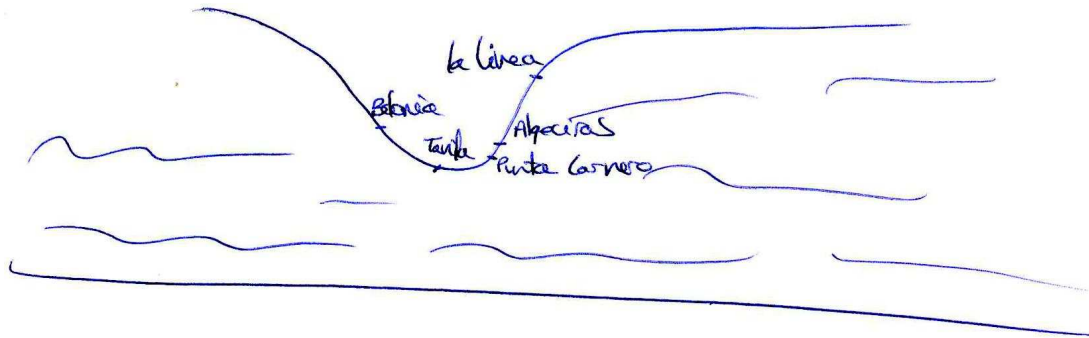 La línea
Bolonia
Algeciras
Tarifa
Punta Carnero